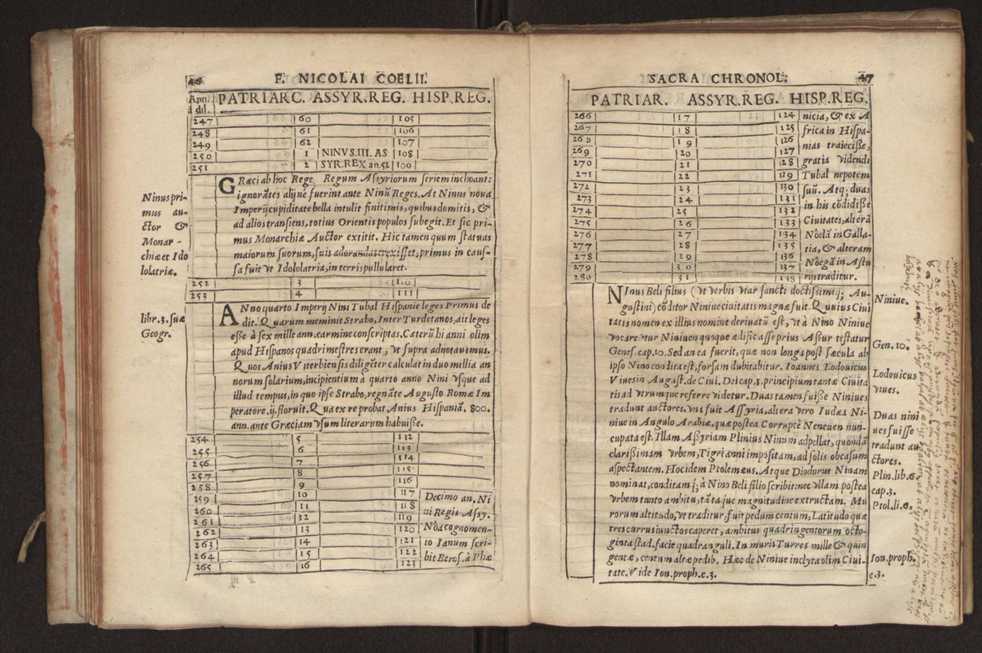 46 F. NICOLAI COELII.
Apn. PATRIARC. ASSYR.REG. HISP.REG.
á dil.
247 60 105
248 61 106
249 62 107
250 1 NINVS.III. AS 108
251 2 SYR.REX an.52 109
Ninus pri-
mus au-
ctor &
Monar-
chiæ et Ido
lolatriæ.
GRæci ab hoc Rege Regum Assyriorum seriem inchoant:
ignorãtes alijne fuerint ante Ninũ Reges. At Ninus noua
Imperij cupiditate bella intulit finitimis, quibus domitis, &
ad alios transiens, totius Orientis populos subegit. Et sic pri-
mus Monarchiæ Auctor extitit. Hic tamen quum statuas
maiorum suorum, suis adorandas erexisset; primus in caus-
sa fuit vt Idololatria, in terris pullularet.
252 3 110
253 4 111
libr. 3. suæ
Geogr.
ANno quarto Imperij Nini Tubal Hispaniæ leges Primus de
dit. Quarum meminit Strabo, Inter Turdetanos, ait leges
esse à sex mille ann. carmine conscriptas. Caterũ hi anni olim
apud Hispanos quadrimestres erant, vt supra adnotauimus.
Quos Anius Viterbiensis diligẽter calculat in duo millia an
norum solarium, incipientium à quarto anno Nini vsque ad
illud tempus, in quo ipse Strabo, regnãte Augusto Romæ Im
peratore .ij. floruit. Qua ex re probat Anius Hispaniã, 800.
ann. ante Græciam vsum literarum habuisse.
254 5 112
255 6 113
256 7 114
257 8 115
258 9 116
259 10 117 Decimo an. Ni
260 11 118 ni Regis Assy.
261 12 119
262 13 120 Nõa cognomen-
263 14 121 to Ianum scri-
264 15 122 bit Beros. à Phæ
265 16 123
SACRA CHRONOL. 47
PATRIAR. ASSYR.REG. HISP.REG.
266 17 124 nicia, & ex A
267 18 125 frica in Hispa-
268 19 126 nias traiecisse,
269 20 127 gratia videndi
270 21 128
271 22 129 Tubal nepotem
272 23 130 suũ. Atq; duas
273 24 131 in his cõdidisse
274 25 132 Ciuitates, alterã
275 26 133
276 27 134 Noelã in Galla-
277 28 135 tia, & alteram
278 29 136 Noegã in Astu
279 30 137 rijs traditur.
280 31 138
NInus Beli filius (vt verbis vtar sancti doctissimiq; Au-
gustini) cõditor Niniue ciuitatis magnæ fuit. Quiuis Ciui
tatis nomen ex illius nomine deriuatũ est, vt à Nino Niniue
vocaretur Niniuen quoque ædificasse prius Assur testatur
Genes. cap. 10. Sed an ea fuerit, quæ non longa post sæcula ab
ipso Nino condita est, forsam dubitabitur. Ioannes Lodouicus
Viues in August. de Ciui. Dei cap. 3. principium tantæ Ciuita
tis ad vtrumque referre videtur. Duas tamen fuisse Niniues
tradunt auctores. vna fuit Assyria, altera vero Iudæa Ni-
niue in Angulo Arabiæ, quæ postea Corruptè Neneuen nun-
cupata est. Illam Assyriam Plinius Ninum adpellat, quondã
clarissimam vrbem, Tigri anni impositam, ad solis obcasum
aspectantem. Hoc idem Ptolemeus. Atque Diodorus Ninam
nominat, conditamq; à Nino Beli filio scribit: nec vllam postea
vrbem tanto ambitu, tãtaque magnitudine extructam. Mu
rorum altitudo, vt traditur, fuit pedum centum, Latitudo quæ
tres currus iunctos caperet, ambitus quadringentorum octo-
ginta stad. facie quadranguli. In muris Turres mille & quin
gentæ, centum altæ pedib. Hæc de Niniue inclyta olim Ciui-
tate. Vide Ion. proph. c. 3.
Niniue.
Gen. 10.
Lodouicus
viues.
Duas nini
ues fuisse
tradunt au
ctores.
Plin. lib. 6.
cap. 3.
Ptol. li. 8.
Ion. proph.
c. 3.